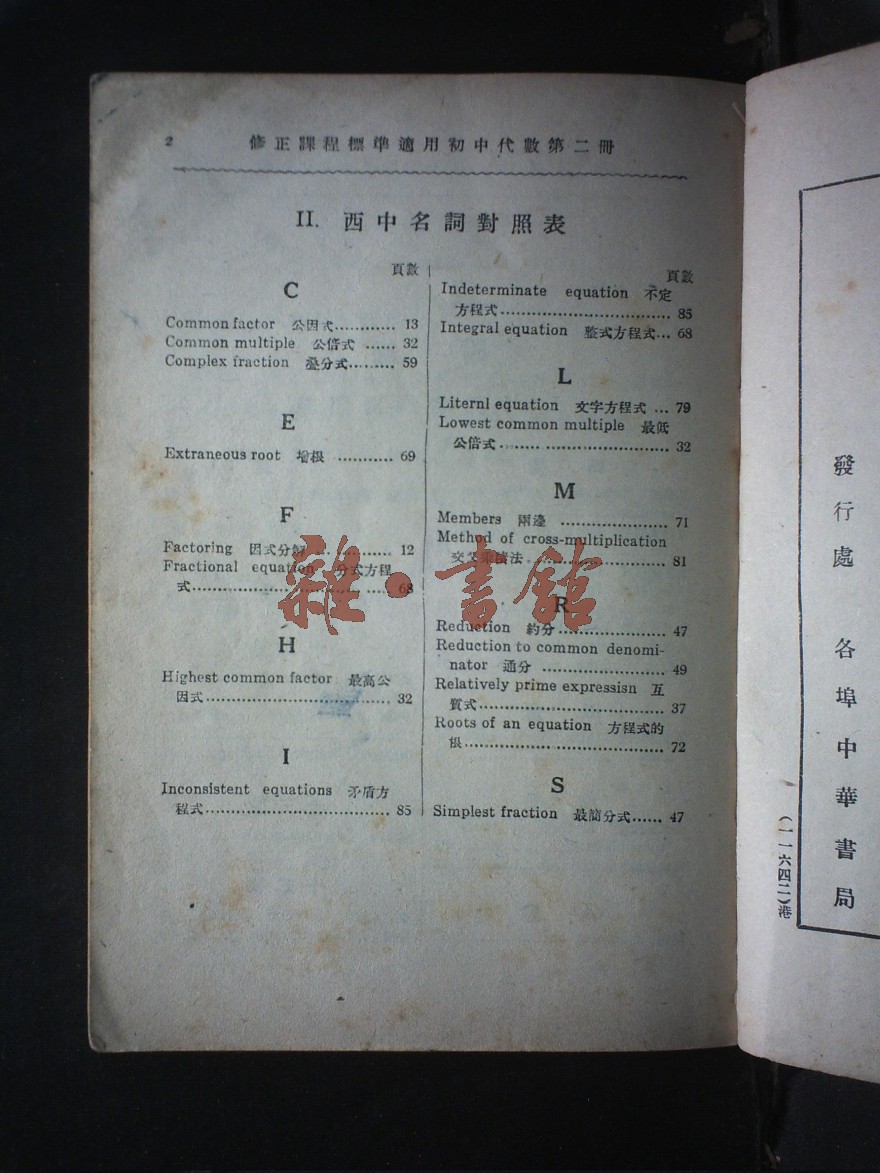 2 修正課程標準適用初中代數第二冊
II. 西中名詞對照表
頁數
C
Common factor 公因式............ 13
Common multiple 公倍式 ...... 32
Complex fraction 疊分式......... 59
E
Extraneous root 增根 ........... 69
F
Factoring 因式分解 ............... 12
Fractional equation 分式方程
式.................................... 68
H
Highest common factor 最高公
因式.................................... 32
I
Inconsistent equations 矛盾方
程式.................................... 85
頁數
Indeterminate equation 不定
方程式................................. 85
Integral equation 整式方程式... 68
L
Liternl equation 文字方程式 ... 79
Lowest common multiple 最低
公倍式................................. 32
M
Members 兩邊 ..................... 71
Method of cross-multiplication
交叉乘積法........................... 81
R
Reduction 約分..................... 47
Reduction to common denomi-
nator 通分 ........................ 49
Relatively prime expressisn 互
質式.................................... 37
Roots of an equation 方程式的
根....................................... 72
S
Simplest fraction 最簡分式...... 47
雜·書館
發行處 各埠中華書局
(一一六四二)港